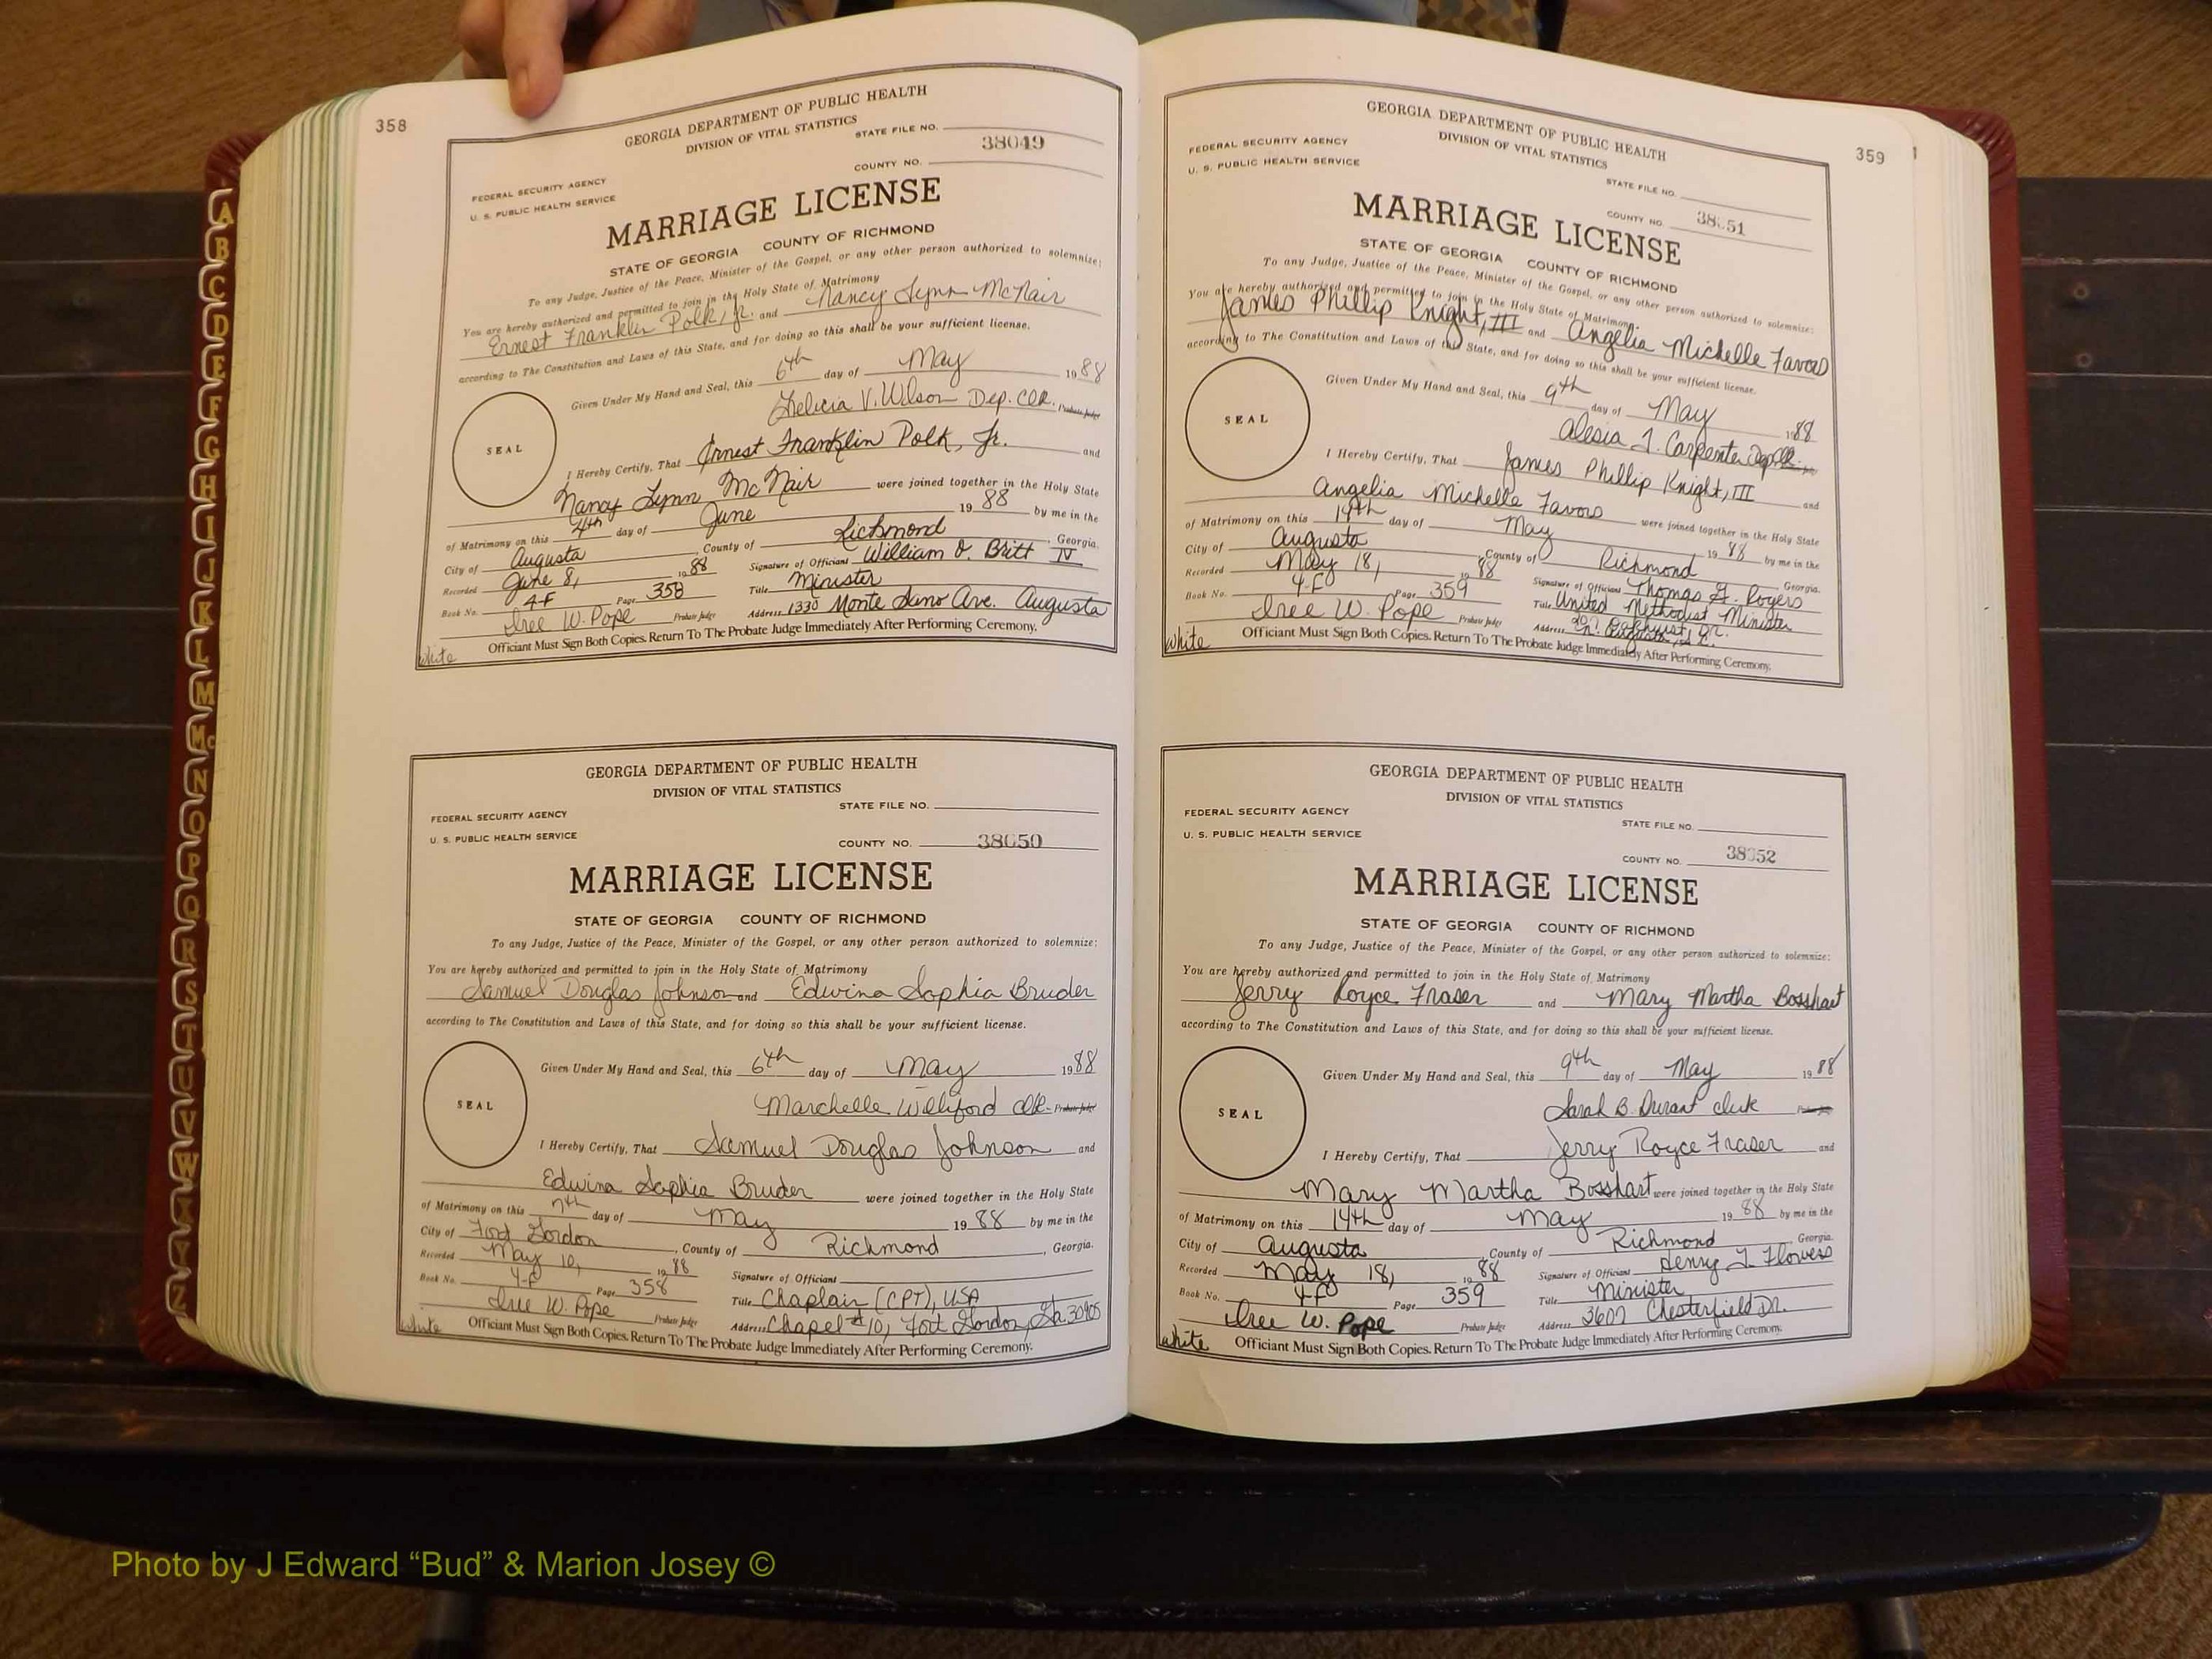 358
GEORGIA DEPARTMENT OF PUBLIC HEALTH
DIVISION OF VITAL STATISTICS
STATE FILE NO.
38049
COUNTY NO.
FEDERAL SECURITY AGENCY
U. S. PUBLIC HEALTH SERVICE
MARRIAGE LICENSE
STATE OF GEORGIA COUNTY OF RICHMOND
To any Judge, Justice of the Peace, Minister of the Gospel, or any other person authorized to solemnize:
You are hereby authorized and permitted to join in the Holy State of Matrimony
Ernest Franklin Polk, Jr. and Nancy Lynn McNair
according to The Constitution and Laws of this State, and for doing so this shall be your sufficient license.
Given Under My Hand and Seal, this 6th day of May 1988
Felicia V. Wilson Dep. Clk. Probate Judge
SEAL
I Hereby Certify, That Ernest Franklin Polk, Jr. and
Nancy Lynn McNair were joined together in the Holy State
of Matrimony on this 4th day of June 19 88 by me in the
City of Augusta, County of Richmond, Georgia.
Recorded June 8, 1988 Signature of Officiant William O. Britt IV
Book No. 4-F Page 358 Title Minister
Iree W. Pope Probate Judge Address 1330 Monte Sano Ave. Augusta
White Officiant Must Sign Both Copies. Return To The Probate Judge Immediately After Performing Ceremony.
GEORGIA DEPARTMENT OF PUBLIC HEALTH
DIVISION OF VITAL STATISTICS
STATE FILE NO.
FEDERAL SECURITY AGENCY
U. S. PUBLIC HEALTH SERVICE
COUNTY NO. 38050
MARRIAGE LICENSE
STATE OF GEORGIA COUNTY OF RICHMOND
To any Judge, Justice of the Peace, Minister of the Gospel, or any other person authorized to solemnize:
You are hereby authorized and permitted to join in the Holy State of Matrimony
Samuel Douglas Johnson and Edwina Sophia Bruder
according to The Constitution and Laws of this State, and for doing so this shall be your sufficient license.
Given Under My Hand and Seal, this 6th day of May 1988
Marchelle Williford Clk. Probate Judge
SEAL
I Hereby Certify, That Samuel Douglas Johnson and
Edwina Sophia Bruder were joined together in the Holy State
of Matrimony on this 7th day of May 19 88 by me in the
City of Fort Gordon, County of Richmond, Georgia.
Recorded May 10, 1988 Signature of Officiant
Book No. 4-F Page 358 Title Chaplain (CPT), USA
Iree W. Pope Probate Judge Address Chapel #10, Fort Gordon, Ga. 30905
White Officiant Must Sign Both Copies. Return To The Probate Judge Immediately After Performing Ceremony.
359
GEORGIA DEPARTMENT OF PUBLIC HEALTH
DIVISION OF VITAL STATISTICS
FEDERAL SECURITY AGENCY
U. S. PUBLIC HEALTH SERVICE
STATE FILE NO.
COUNTY NO. 38051
MARRIAGE LICENSE
STATE OF GEORGIA COUNTY OF RICHMOND
To any Judge, Justice of the Peace, Minister of the Gospel, or any other person authorized to solemnize:
You are hereby authorized and permitted to join in the Holy State of Matrimony
James Phillip Knight, III and Angelia Michelle Favors
according to The Constitution and Laws of this State, and for doing so this shall be your sufficient license.
Given Under My Hand and Seal, this 9th day of May 1988
Alesia J. Carpenter
SEAL
I Hereby Certify, That James Phillip Knight, III and
Angelia Michelle Favors were joined together in the Holy State
of Matrimony on this 14th day of May 19 88 by me in the
City of Augusta, County of Richmond, Georgia.
Recorded May 18, 1988 Signature of Officiant Thomas H. Rogers
Book No. 4-F Page 359 Title United Methodist Minister
Iree W. Pope Probate Judge Address Dr. N. Augusta, S.C.
White Officiant Must Sign Both Copies. Return To The Probate Judge Immediately After Performing Ceremony.
GEORGIA DEPARTMENT OF PUBLIC HEALTH
DIVISION OF VITAL STATISTICS
FEDERAL SECURITY AGENCY
U. S. PUBLIC HEALTH SERVICE
STATE FILE NO.
COUNTY NO. 38052
MARRIAGE LICENSE
STATE OF GEORGIA COUNTY OF RICHMOND
To any Judge, Justice of the Peace, Minister of the Gospel, or any other person authorized to solemnize:
You are hereby authorized and permitted to join in the Holy State of Matrimony
Jerry Royce Fraser and Mary Martha Bosshart
according to The Constitution and Laws of this State, and for doing so this shall be your sufficient license.
Given Under My Hand and Seal, this 9th day of May 1988
Sarah B. Durant clerk Probate Judge
SEAL
I Hereby Certify, That Jerry Royce Fraser and
Mary Martha Bosshart were joined together in the Holy State
of Matrimony on this 14th day of May 19 88 by me in the
City of Augusta, County of Richmond, Georgia.
Recorded May 18, 1988 Signature of Officiant Henry J. Flowers
Book No. 4-F Page 359 Title Minister
Iree W. Pope Probate Judge Address 3607 Chesterfield Dr.
White Officiant Must Sign Both Copies. Return To The Probate Judge Immediately After Performing Ceremony.
A
B
C
D
E
F
G
H
I
J
K
L
M
Mc
N
O
P
Q
R
S
T
U
V
W
X
Y
Z
Photo by J Edward “Bud” & Marion Josey ©